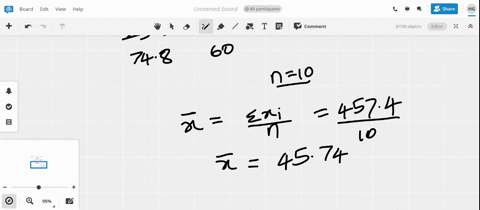 Board Edit View Help
Unnamed board
All participants
Share
Comment
0/100 objects
Editor
74.8 60
n=10
x̄ = Σxi/n = 457.4/10
x̄ = 45.74
95%